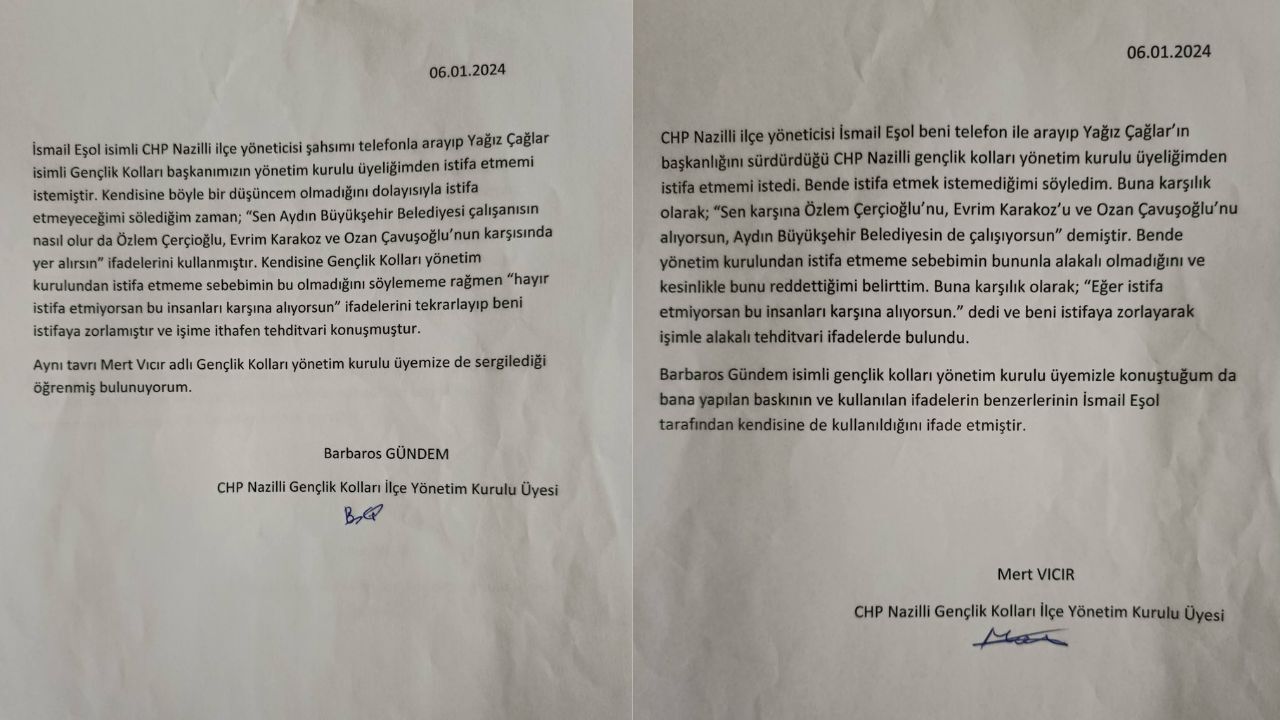 06.01.2024
İsmail Eşol isimli CHP Nazilli ilçe yöneticisi şahsımı telefonla arayıp Yağız Çağlar
isimli Gençlik Kolları başkanımızın yönetim kurulu üyeliğimden istifa etmemi
istemiştir. Kendisine böyle bir düşüncem olmadığını dolayısıyla istifa
etmeyeceğimi sölediğim zaman; “Sen Aydın Büyükşehir Belediyesi çalışanısın
nasıl olur da Özlem Çerçioğlu, Evrim Karakoz ve Ozan Çavuşoğlu’nun karşısında
yer alırsın” ifadelerini kullanmıştır. Kendisine Gençlik Kolları yönetim
kurulundan istifa etmeme sebebimin bu olmadığını söylememe rağmen “hayır
istifa etmiyorsan bu insanları karşına alıyorsun” ifadelerini tekrarlayıp beni
istifaya zorlamıştır ve işime ithafen tehditvari konuşmuştur.
Aynı tavrı Mert Vıcır adlı Gençlik Kolları yönetim kurulu üyemize de sergilediği
öğrenmiş bulunuyorum.
Barbaros GÜNDEM
CHP Nazilli Gençlik Kolları İlçe Yönetim Kurulu Üyesi
06.01.2024
CHP Nazilli ilçe yöneticisi İsmail Eşol beni telefon ile arayıp Yağız Çağlar’ın
başkanlığını sürdürdüğü CHP Nazilli gençlik kolları yönetim kurulu üyeliğimden
istifa etmemi istedi. Bende istifa etmek istemediğimi söyledim. Buna karşılık
olarak; “Sen karşına Özlem Çerçioğlu’nu, Evrim Karakoz’u ve Ozan Çavuşoğlu’nu
alıyorsun, Aydın Büyükşehir Belediyesin de çalışıyorsun” demiştir. Bende
yönetim kurulundan istifa etmeme sebebimin bununla alakalı olmadığını ve
kesinlikle bunu reddettiğimi belirttim. Buna karşılık olarak; “Eğer istifa
etmiyorsan bu insanları karşına alıyorsun.” dedi ve beni istifaya zorlayarak
işimle alakalı tehditvari ifadelerde bulundu.
Barbaros Gündem isimli gençlik kolları yönetim kurulu üyemizle konuştuğum da
bana yapılan baskının ve kullanılan ifadelerin benzerlerinin İsmail Eşol
tarafından kendisine de kullanıldığını ifade etmiştir.
Mert VICIR
CHP Nazilli Gençlik Kolları İlçe Yönetim Kurulu Üyesi